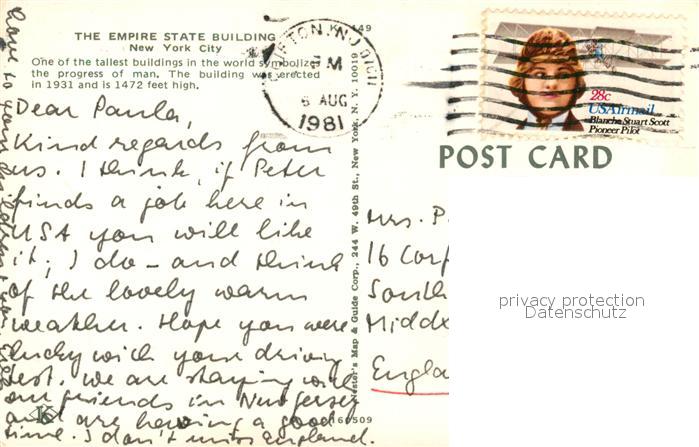 K-149
THE EMPIRE STATE BUILDING
New York City
One of the tallest buildings in the world symbolizes
the progress of man. The building was erected
in 1931 and is 1472 feet high.
Dear Paula,
Kind regards from
us. I think, if Peter
finds a job here in
USA you will like
it; I do – and think
of the lovely warm
weather. Hope you were
lucky with your driving
test. We are staying with
our friends in New Jersey
and are having a good
time. I don't miss England.
Love to your
CLIFTON, N.J.
PM
6 AUG
1981
28c
USAirmail
Blanche Stuart Scott
Pioneer Pilot
POST CARD
Nester's Map & Guide Corp., 244 W. 49th St., New York, N. Y. 10019
Mrs. P
16
South
Middx
Engla
privacy protection
Datenschutz
K